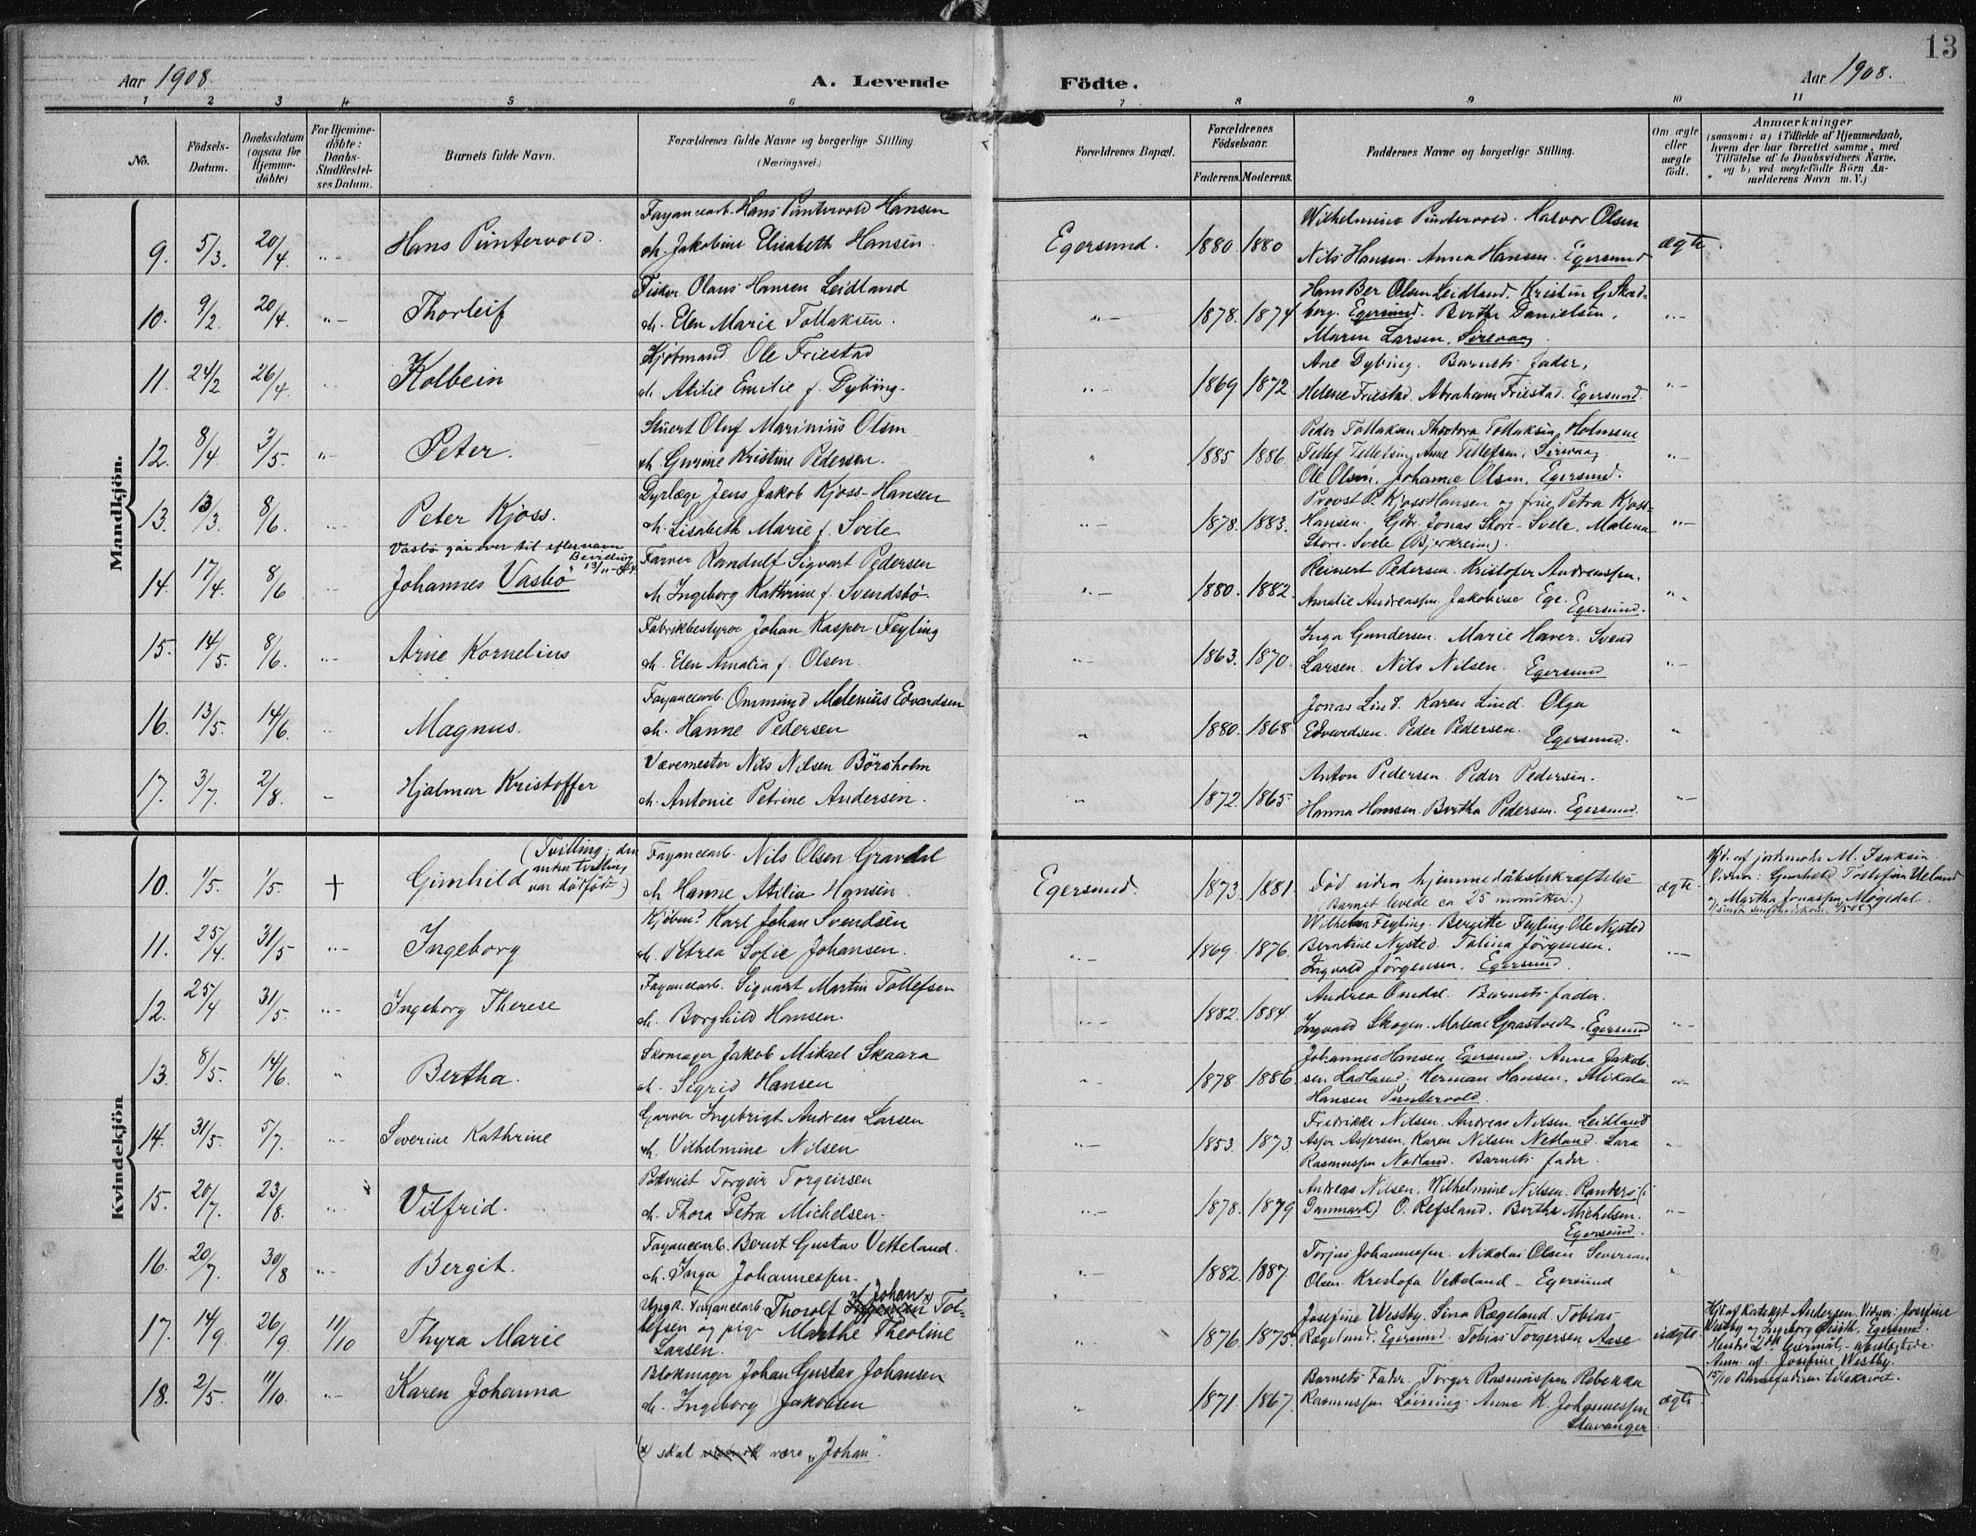 13
Aar 1908.
A. Levende
Födte.
Aar 1908.
1 2 3 4 5 6 7 8 9 10 11
No.
Födsels-Datum.
Daabsdatum (ogsaa for Hjemme-döbte)
For Hjemme-döbte: Daabs-Stadfæstel-ses Datum.
Barnets fulde Navn.
Forældrenes fulde Navne og borgerlige Stilling (Næringsvei.)
Forældrenes Bopæl.
Forældrenes Födselsaar.
Faderens. Moderens.
Faddernes Navne og borgerlige Stilling.
Om ægte eller uægte födt.
Anmærkninger
(saasom: a) i Tilfælde af Hjemmedaab, hvem der har forrettet samme, med Tilföielse af to Daabsvidners Navne, og b) ved uægtefödte Börn Anmelderens Navn m. V.)
Mandkjön.
9. 5/3. 20/4. "- Hans Puntervold.
Fayancearb. Hans Puntervold Hansen
oh. Jakobine Elisabeth Hansen.
Egersund. 1880 1880
Wilhelmine Puntervold. Halvor Olsen
Nils Hansen. Anna Hansen. Egersund
ægte.
10. 9/2. 20/4. "- Thorleif
Fisker Olaus Hansen Leidland
oh. Elen Marie Tollaksen.
"- 1878. 1874
Hans Ber Olsen Leidland. Kristin G Skad-
berg. Egersund. Berthe Danielsen,
Maren Larsen, Sirevaag
"-
11. 24/2 26/4. Kolbein
Kjöbmand Ole Friestad
oh. Atilie Emilie f. Dybing.
"- 1869 1872
Ane Dybing. Barnets fader,
Helene Friestad. Abraham Friestad. Egersund.
"-
12. 8/4 3/5. "- Peter.
Stuert Oluf Marinius Olsen
oh. Gurine Kristine Pedersen.
" 1885 1886.
Peder Tollaksen Theodora Tollaksen, Holmene
Tellef Tellefsen, Anne Tellefsen. Sirevaag
Ole Olsen, Johanne Olsen, Egersund.
"-
13. 13/3. 8/6. Peter Kjoss.
Dyrlæge Jens Jakob Kjoss-Hansen
oh. Lisabeth Marie f. Svele
"- 1878. 1883.
Provst P. Kjoss Hansen og frue Petra Kjoss-
Hansen. Gdr. Jonas Store-Svele. Malena
Store-Svele (Bjerkreim).
"-
Vasbö går over til efternavn
Bevilling 13/11-
14. 17/4. 8/6 Johannes Vasbö
Farver Randulf Sigvart Pedersen
oh Ingeborg Kathrine f. Svendsbö.
"- 1880. 1882.
Reinert Pedersen. Kristofer Andreassen.
Amalie Andreassen Jakobine Ege. Egersund.
"-
15. 14/5. 8/6. "- Arne Kornelius
Fabrikbestyrer Johan Kasper Feyling
oh. Elen Amalia f. Olsen.
"- 1863. 1870.
Inga Gundersen. Marie Haver. Svend
Larsen. Nils Nilsen. Egersund
"-
16. 13/5. 14/6. Magnus.
Fayancearb. Ommund Malenius Edvardsen
oh. Hanne Pedersen
" 1880. 1868
Jonas Lind. Karen Lind. Olga
Edvardsen. Peder Pedersen. Egersund.
"
17. 3/7. 2/8. - Hjalmar Kristoffer
Vævemester Nils Nilsen Börsholm
oh. Antonie Petrine Andersen.
" 1872 1865
Anton Pedersen. Peder Pedersen.
Hanna Hansen. Bertha Pedersen. Egersund
"-
Kvindekjön
10. 1/5. 1/5. + Gunhild (Tvilling; den
andre tvilling
var dödfödt)
Fayancearb. Nils Olsen Gravdal
oh Hanne Atilia Hansen.
Egersund. 1873. 1881.
Död uden hjemmedåbsbekræftelse
(Barnet levede ca 25 minutter.)
ægte.
Hjd. af jordemoder M. Isaksen
Vidner: Gunhild Tollefsen Ueland
og Martha Jonassen Mögedal.
11. 25/4. 31/5 "- Ingeborg
Kjöbmd Karl Johan Svendsen
oh. Petrea Sofie Johansen.
"- 1869. 1876.
Wilhelm Feyling. Bergitte Feyling. Ole Nysted
Berntine Nysted. Talina Jörgensen.
Ingvald Jörgensen. Egersund.
"-
12. 25/4 31/5. "- Ingeborg Therese
Fayancearb. Sigvart Martin Tollefsen
oh. Borghild Hansen.
"- 1882. 1884.
Andrea Omdal. Barnets fader.
Ingvald Skogen. Malene Grastveit. Egersund
"-
13. 8/5. 14/6. " Bertha.
Skomager Jakob Mikael Skaara
oh. Sigrid Hansen
"- 1878 1886
Johannes Hansen Egersund. Anna Jakob-
sen Hadland; Herman Hansen, Mikala
Hansen Puntervold.
"-
14. 31/5. 5/7. "- Severine Kathrine
Garver Ingebrigt Andreas Larsen
oh. Vilhelmine Nilsen
"- 1853. 1873
Fredrikke Nilsen. Andreas Nilsen. Leidland
Asper Aspersen. Karen Nilsen Netland. Sara
Rasmussen Netland. Barnets fader.
"
15. 20/7. 23/8. "- Vilfrid.
Torgeir Torgeirsen
oh. Thora Petra Michelsen.
"- 1878. 1879
Andreas Nilsen, Wilhelmine Nilsen. Randers (i
Danmark) O. Refsland. Berthe Michelsen.
Egersund.
"-
16. 20/7. 30/8 "- Bergit.
Fayancearb. Bernt Gustav Vetteland.
oh. Inga Johannessen.
"- 1882. 1887.
Torjus Johannessen. Nikolai Olsen Severine
Olsen Kristofa Vetteland - Egersund
"
17. 14/9. 26/9 11/10 Thyra Marie
Ungk. Fayancearb. Thorolf Johan x) Tol-
lefsen og pige Marthe Theoline
Larsen.
" 1876. 1875
Josefine Westby. Sina Rægeland. Tobias
Rægeland. Egersund. Tobias Torgersen Aase
uægte.
Hjd. af Katekst Andersen. Vidner: Josefine
Westby og Ingeborg Egersund.
Hendes 2det leiermål,
Anm. af Josefine Westby.
15/10 Barnefaderen tilskrevet.
18. 2/5. 11/10. "- Karen Johanna
Blokmager Johan Gustav Johansen
oh. Ingeborg Jakobsen
" 1871. 1867.
Barnets Fader. Torger Rasmussen Rebekka
Rasmussen Löining. Anna K. Johannessen
Stavanger
ægte
x) skal være "Johan".